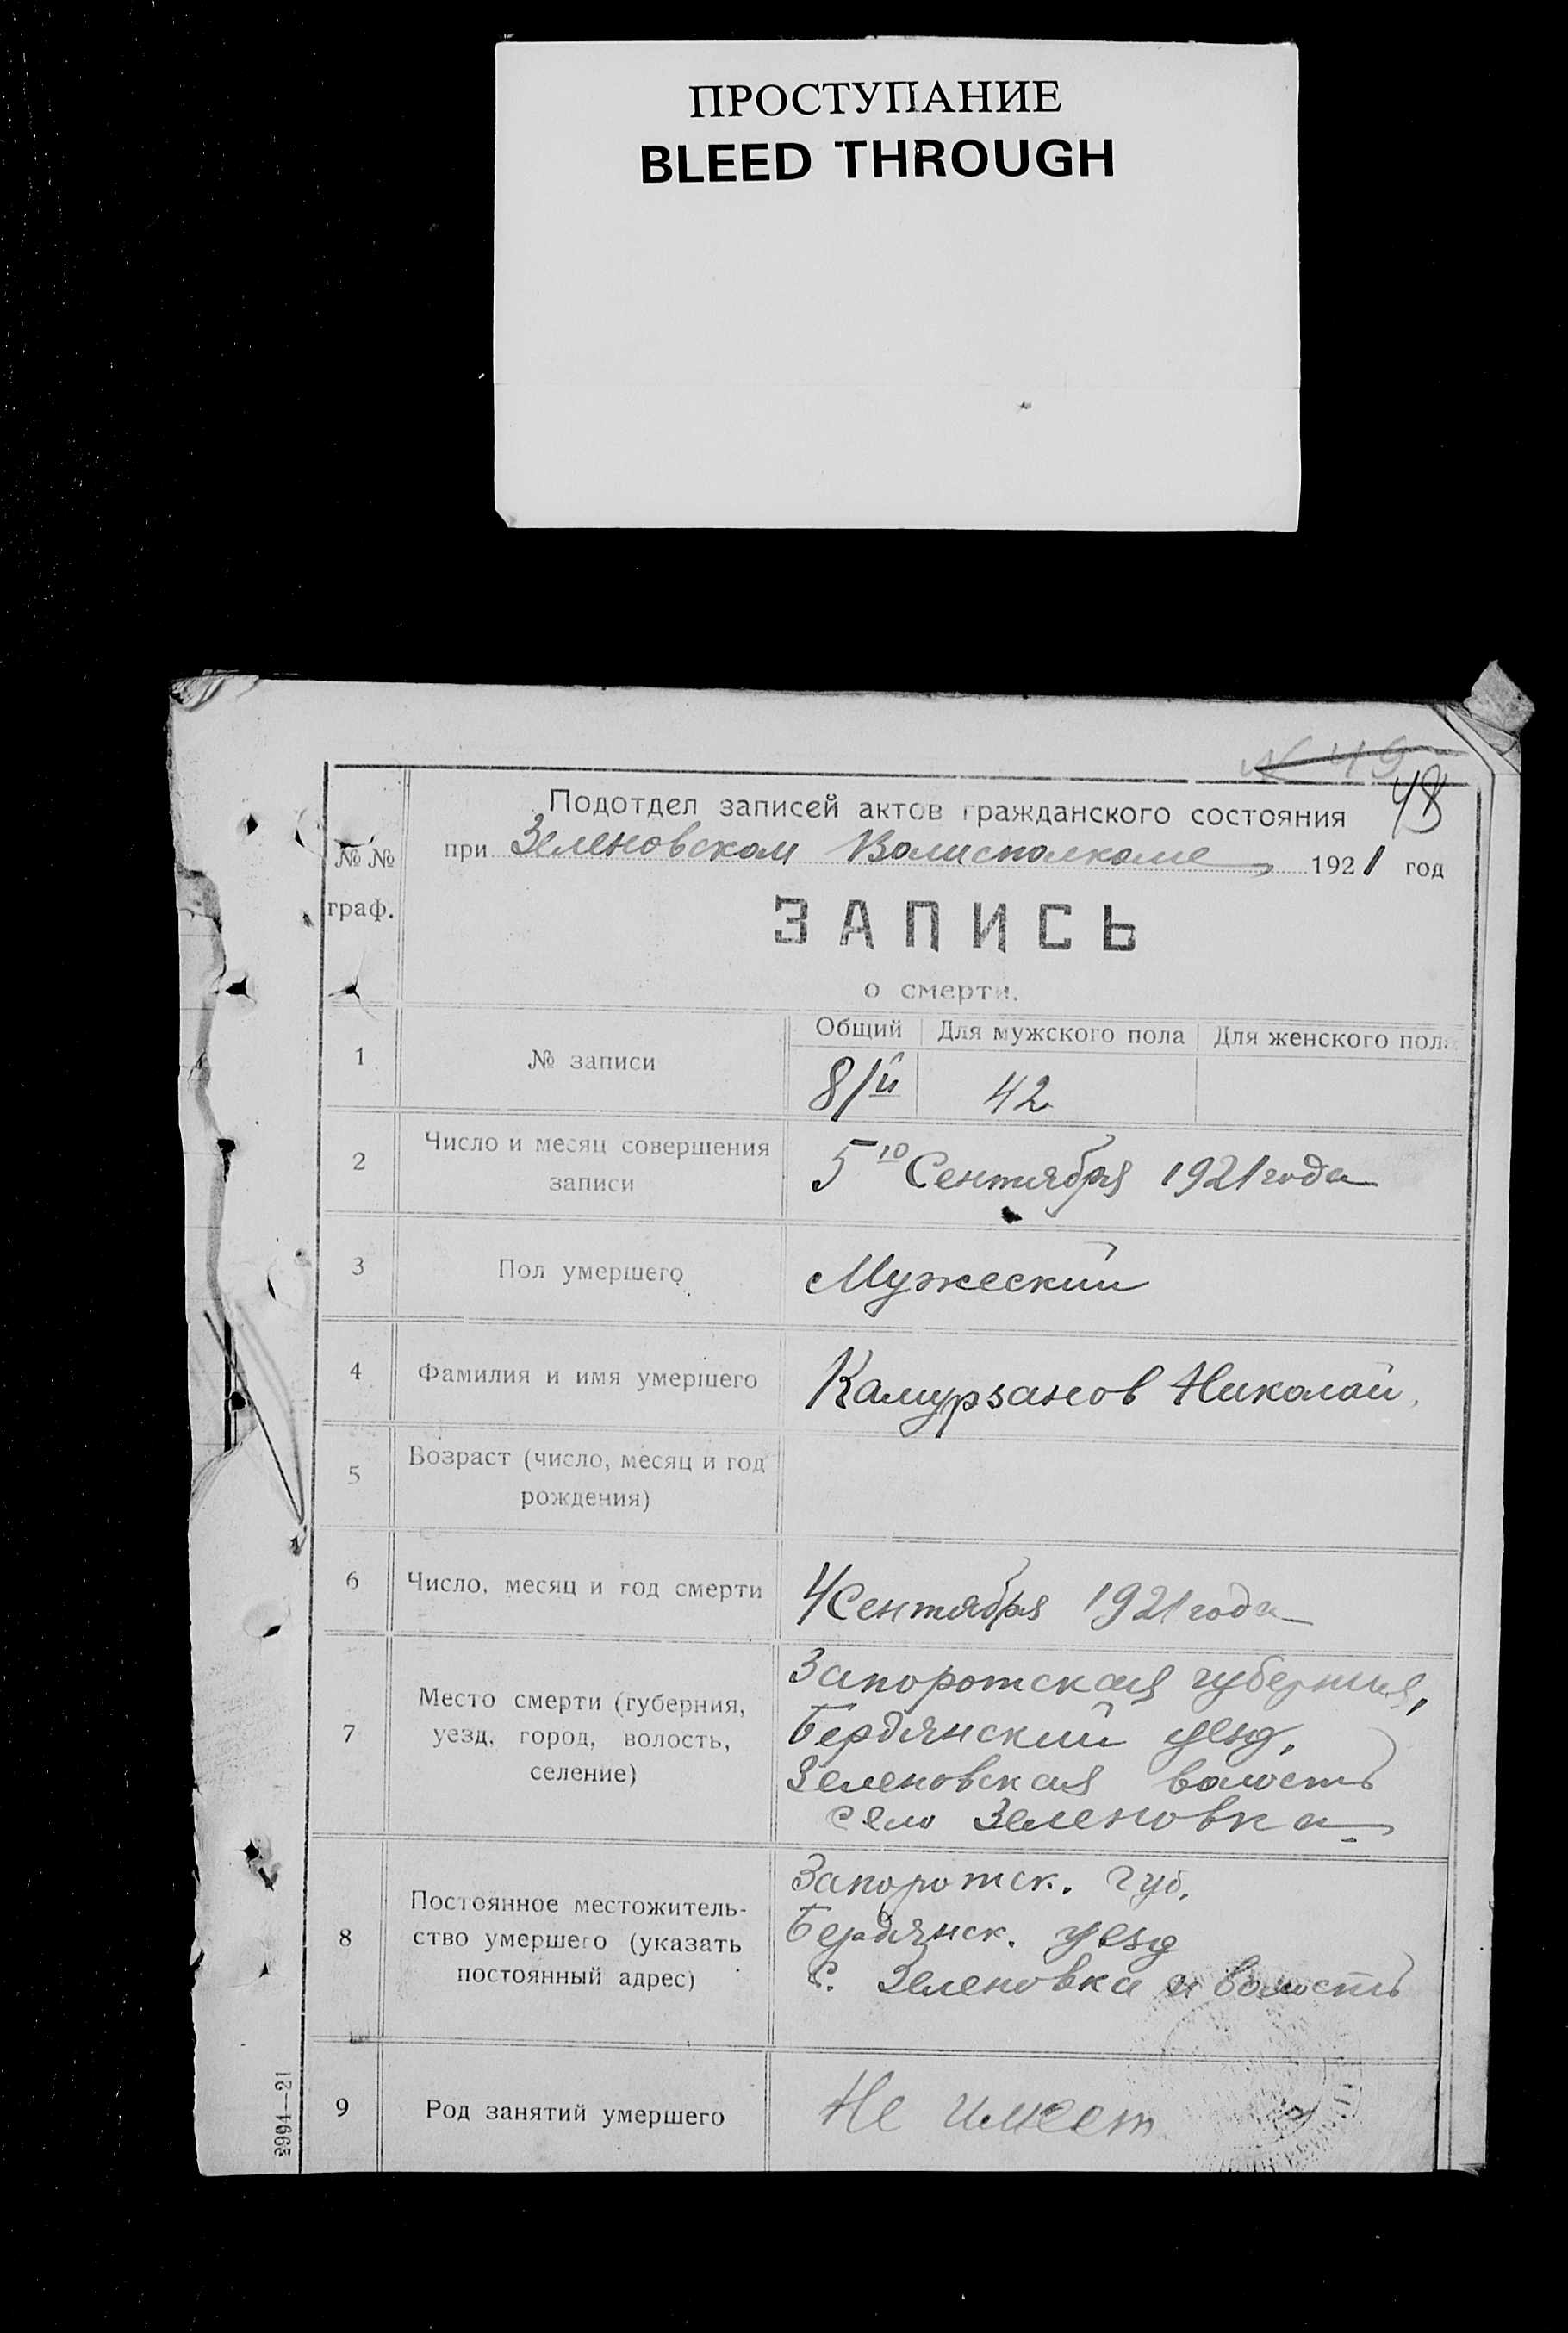 ПРОСТУПАНИЕ
BLEED THROUGH
№ 49
48
Подотдел записей актов гражданского состояния
при Зеленовском Волисполкоме 1921 год
№ №
граф.
ЗАПИСЬ
о смерти.
Общий Для мужского пола Для женского пола
1 № записи 8/й 42
2 Число и месяц совершения
записи
5го Сентября 1921 года
3 Пол умершего Мужеский
4 Фамилия и имя умершего Камурзанов Николай.
5 Возраст (число, месяц и год
рождения)
6 Число, месяц и год смерти 4 Сентября 1921 года
7 Место смерти (губерния,
уезд, город, волость,
селение)
Запоротская губерния,
Бердянский уезд,
Зеленовская волость
село Зеленовка
8 Постоянное местожитель-
ство умершего (указать
постоянный адрес)
Запоротск. губ.
Бердянск. уезд
с. Зеленовка и волость
9 Род занятий умершего Не имеет
2994—21